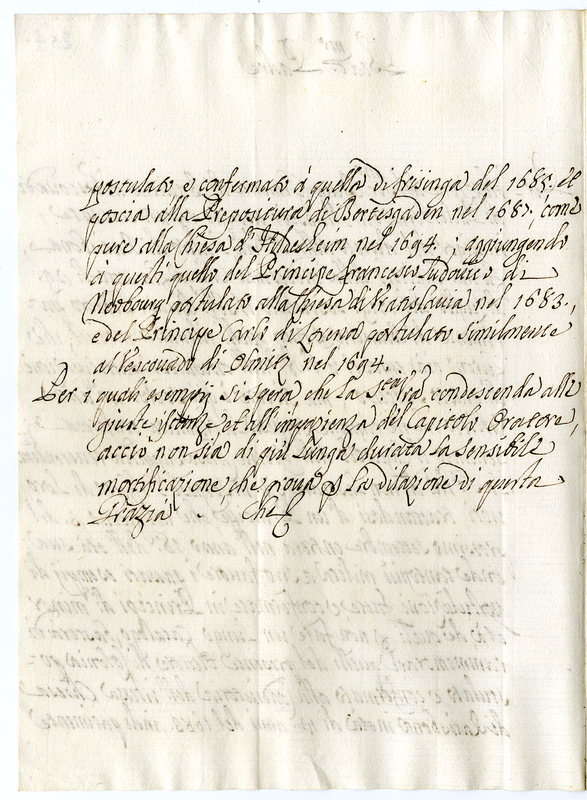 postulato e confermato à quella di frisinga del 1685. et
poscia alla Prepositura di Bertesgaden nel 1687; come
pure alla Chiesa d'Hildesheim nel 1694.; aggiungendo
à questi quello del Principe francesco Ludovico di
Neobourg postulato alla Chiesa di Vratislavia nel 1683.,
e del Principe Carlo di Lorena postulato similmente
al Vescovado di Olmitz nel 1694.
Per i quali esempij si spera che la S.tà V.ra condescenda alle
giuste istanze et all'impazienza del Capitolo Oratore,
acciò non sia di più lunga durata la sensibile
mortificazione che prova p la dilazione di questa
Grazia. Che